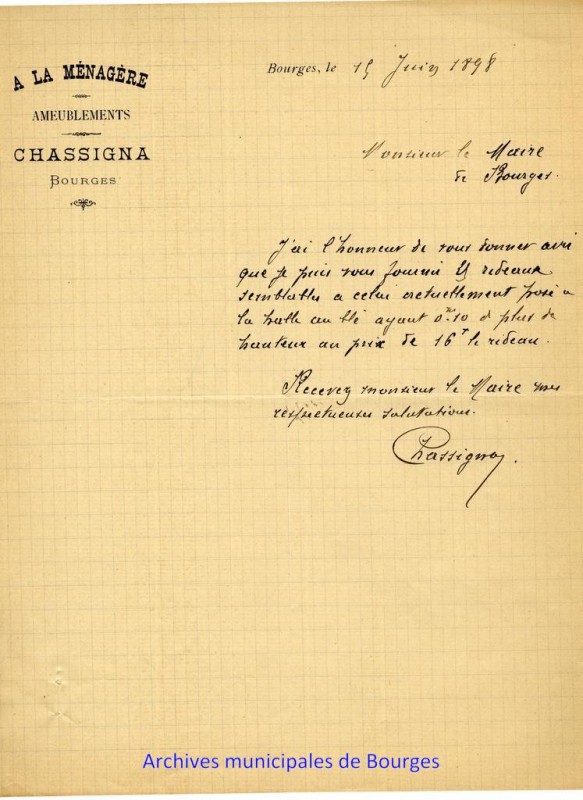 A LA MÉNAGÈRE
AMEUBLEMENTS
CHASSIGNA
BOURGES
Bourges, le 15 Juin 1898
Monsieur le Maire
de Bourges.
J'ai l'honneur de vous donner avis
que je puis vous fournir rideaux
semblables a celui actuellement posé a
la halle au blé ayant 0m10 de plus de
hauteur au prix de 16f le rideau.
Recevez monsieur le Maire mes
respectueuses salutations.
Chassigna.
Archives municipales de Bourges